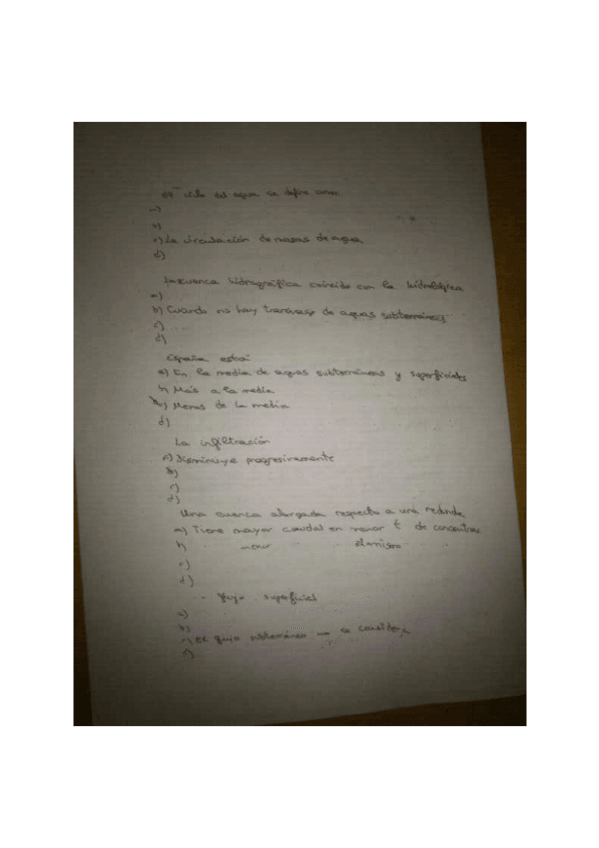 ciclo del agua se define como
a)
b)
c) La circulación de masas de agua
d)
La cuenca hidrográfica coincide con la hidrológica
a)
b) Cuando no hay trasvase de aguas subterráneas
c)
d)
España está:
a) En la media de aguas subterráneas y superficiales
b) Más a la media
c) Menos de la media
d)
La infiltración
a) Disminuye progresivamente
b)
c)
d)
Una cuenca alargada respecto a una redonda
a) Tiene mayor caudal en menor t de
b)
c)
d)
flujo superficial
a)
b)
c) El flujo subterráneo no se considera
d)